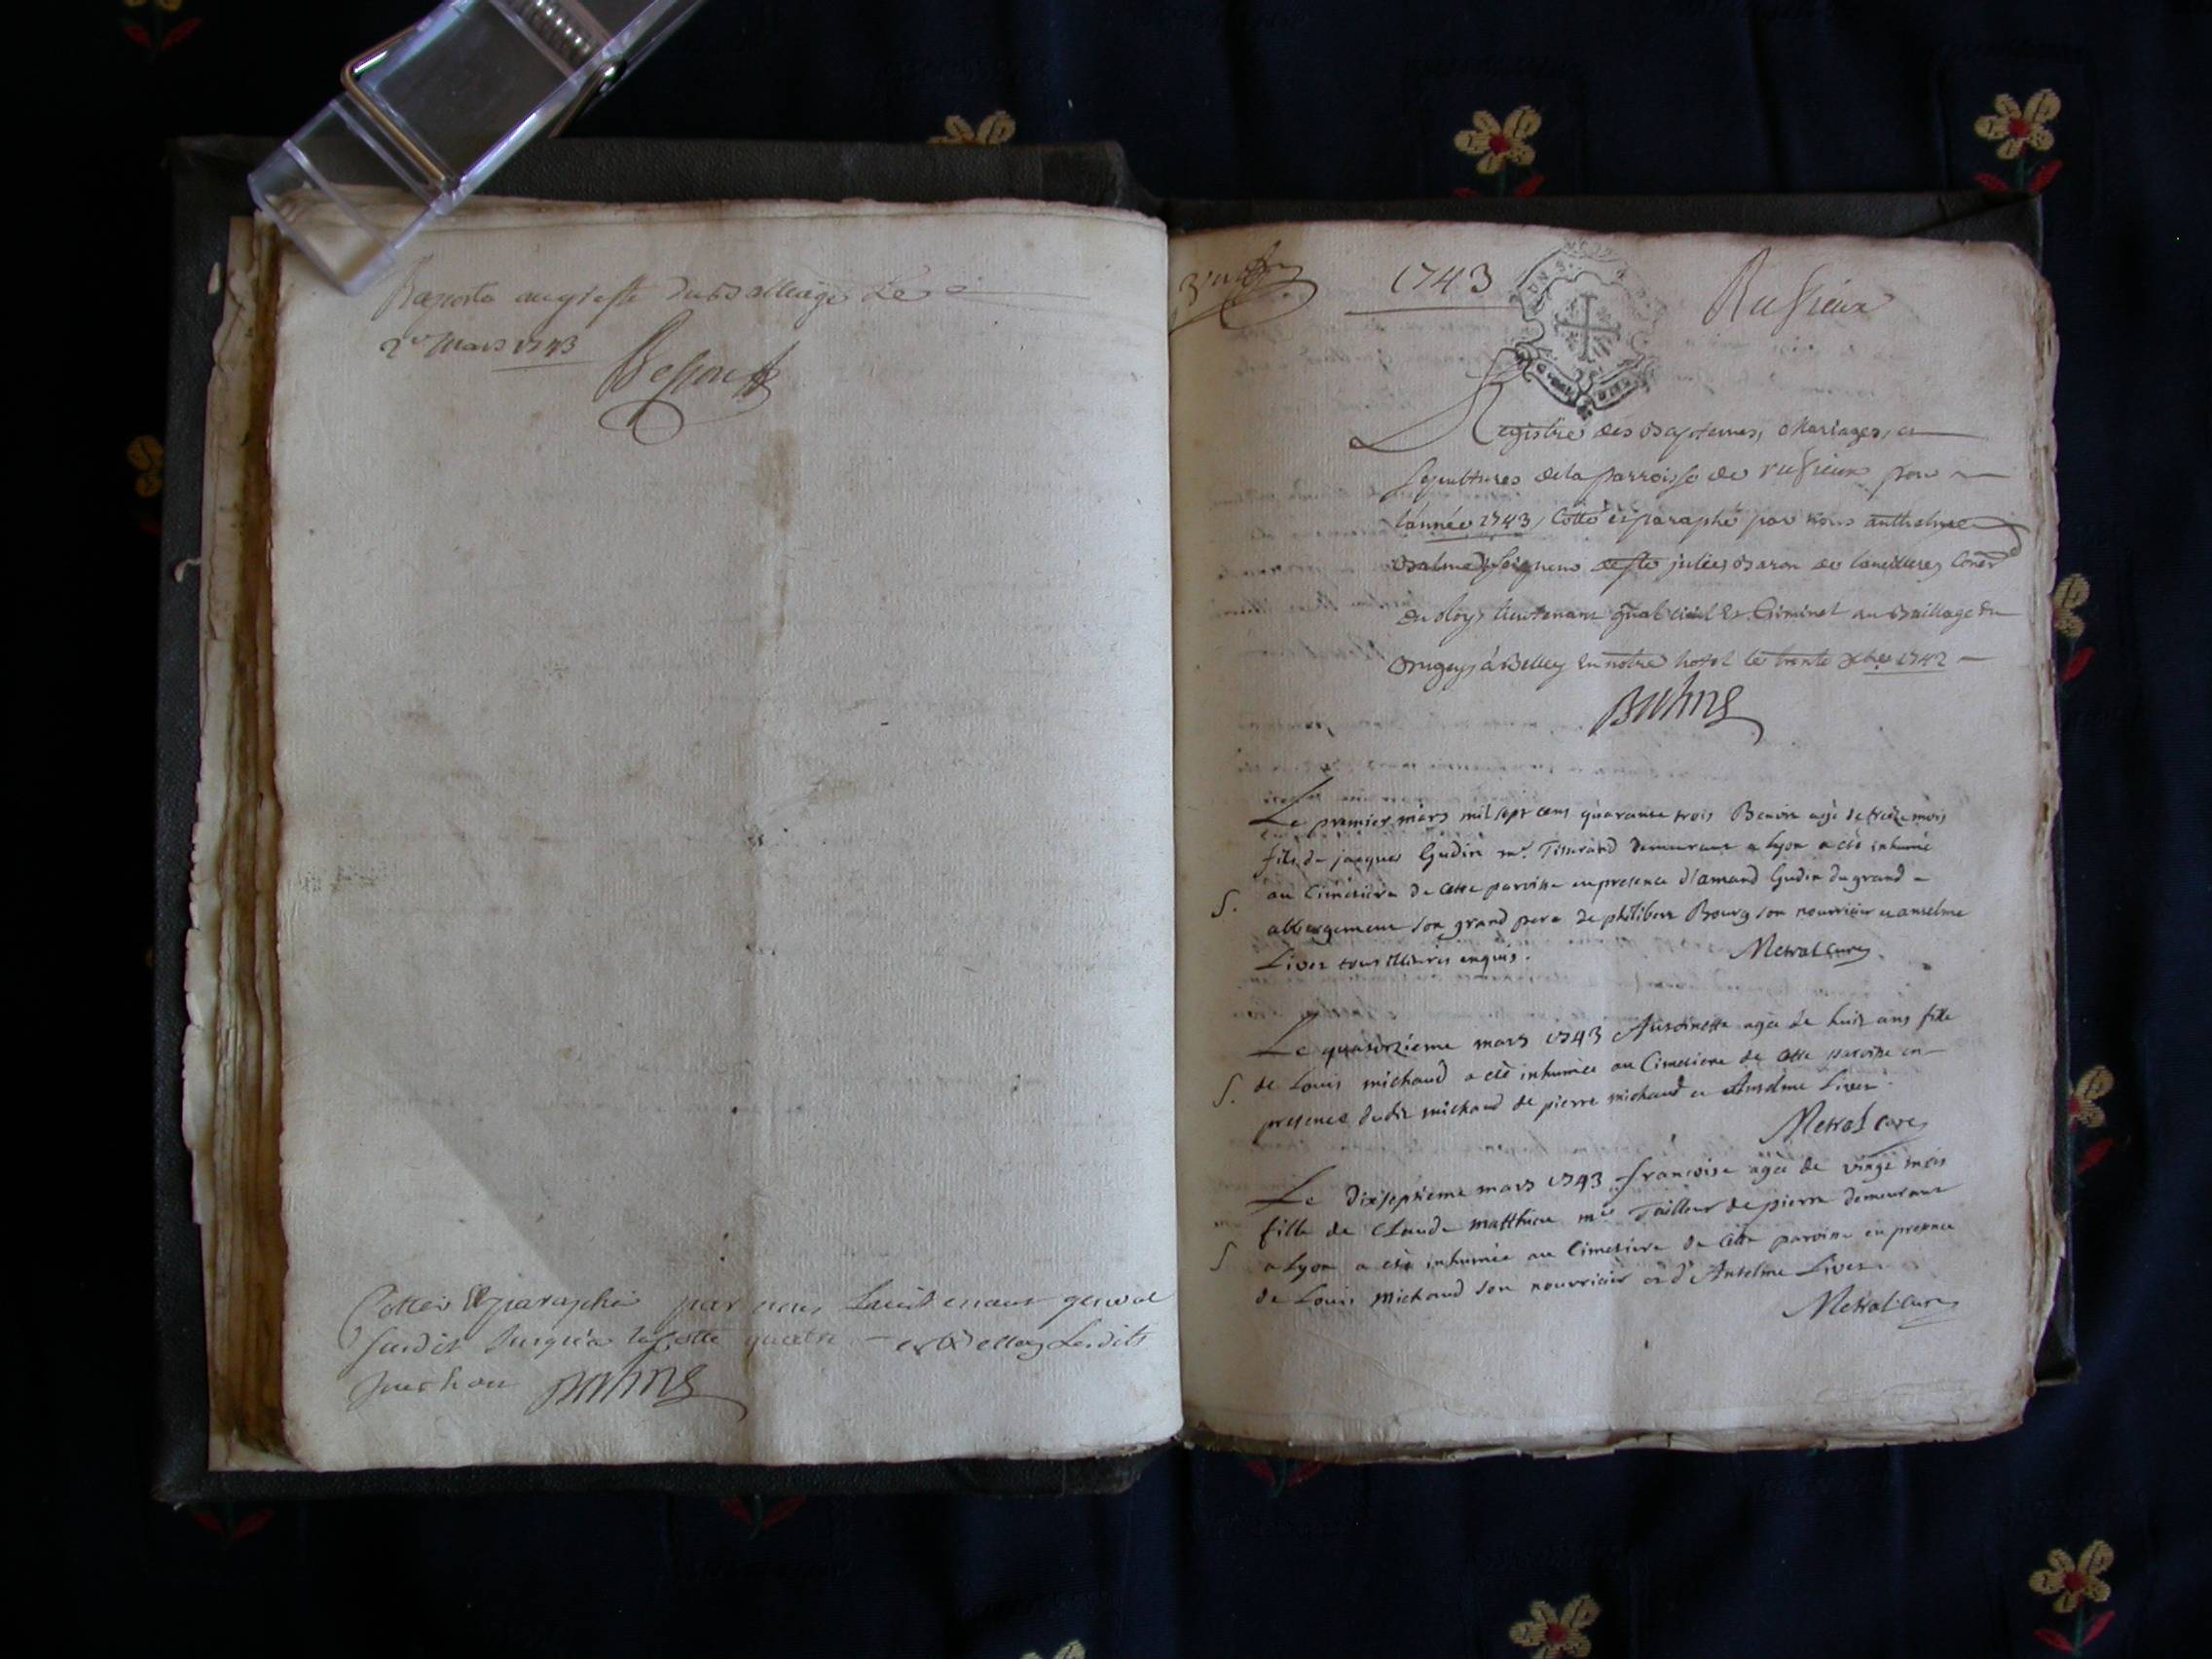 Raporté au greffe du Balliage Le
2e Mars 1743
Cottée et paraphé par nous Lieutenant general
susdit Jusqu'a la cotte quatre et Belley Lesdits
1743
Rufieux
Registre des Baptemes, Mariages, et
sepultures de la parroisse de rufieux pour
l'année 1743, Cotté et paraphé par nous anthelme
Balme Seigneur de ste julie, Baron de Coner
du Roy, lieutenant gnal civil et Criminel au Baillage du
Bugey, à Belley en notre hotel le trente xbre 1742
Le premier mars mil sept cens quarante trois Benoit agé de treize mois
fils de jacques Gudin me Tisserand demeurant a Lyon a eté inhumé
S. au Cimetiere de cette paroisse en presence d'amand Gudin du grand
abbergement son grand pere de philibert Bourg son nourricier et anselme
Livet tous illitérés enquis. Metral curé
Le quatorzieme mars 1743 Antoinette agée de huit ans fille
S. de Louis michaud a eté inhumée au Cimetiere de cette paroisse en
presence dudit michaud de pierre michaud et Anselme Livet.
Metral curé
Le dixseptieme mars 1743 françoise agée de vingt mois
fille de Claude matthieu me Tailleur de pierre demeurant
S a Lyon a eté inhumée au Cimetiere de cette paroisse en presence
de Louis Michaud son nourricier et d'Anselme Livet.
Metral curé